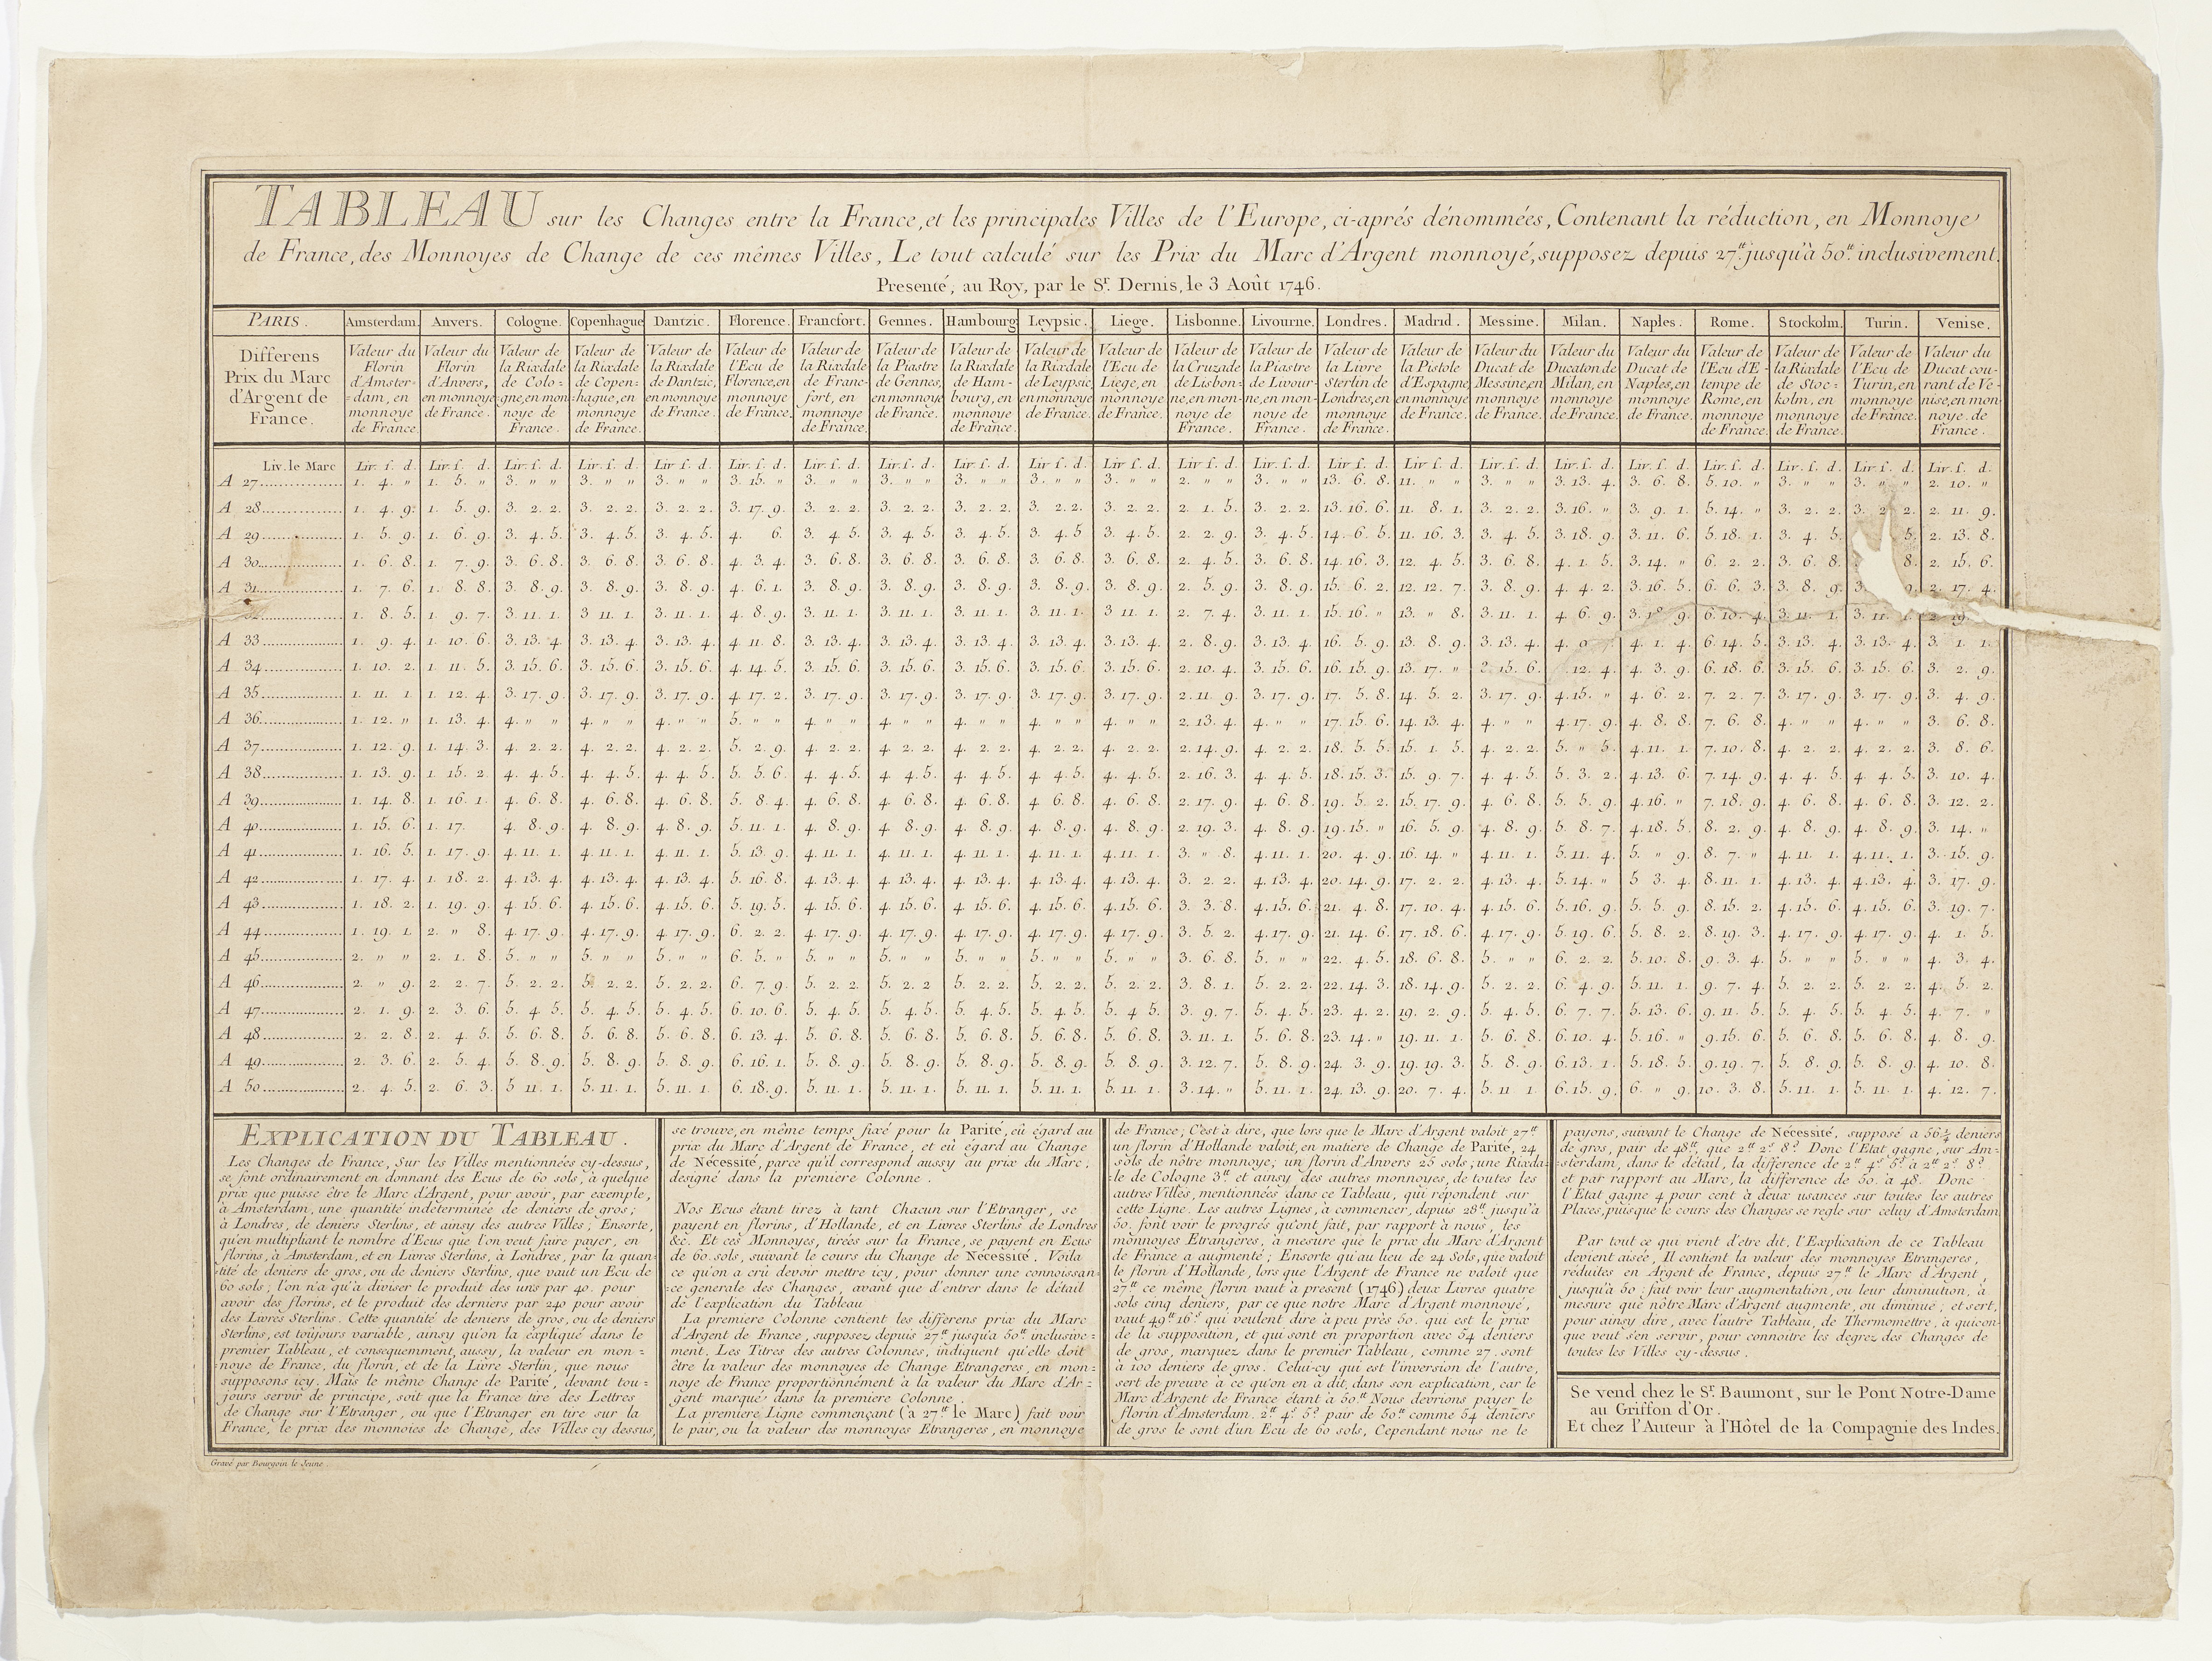 TABLEAU sur les Changes entre la France, et les principales Villes de l'Europe, ci-aprés dénommées, Contenant la réduction, en Monnoye
de France, des Monnoyes de Change de ces mêmes Villes, Le tout calculé sur les Prix du Marc d'Argent monnoyé, supposez depuis 27.tt jusqu'à 50.tt inclusivement.
Presenté, au Roy, par le Sr. Dernis, le 3 Août 1746.
PARIS. Amsterdam. Anvers. Cologne. Copenhague Dantzic. Florence. Francfort. Gennes. Hambourg Leypsic. Liege. Lisbonne. Livourne. Londres. Madrid. Messine. Milan. Naples. Rome. Stockolm. Turin. Venise.
Differens Prix du Marc d'Argent de France.
Valeur du Florin d'Amster= =dam, en monnoye de France.
Valeur du Florin d'Anvers, en monnoye de France.
Valeur de la Rixdale de Colo= =gne, en mon noye de France.
Valeur de la Rixdale de Copen= =hague, en monnoye de France.
Valeur de la Rixdale de Dantzic, en monnoye de France.
Valeur de l'Ecu de Florence, en monnoye de France.
Valeur de la Rixdale de Franc- fort, en monnoye de France.
Valeur de la Piastre de Gennes, en monnoye de France.
Valeur de la Rixdale de Ham- bourg, en monnoye de France.
Valeur de la Rixdale de Leypsic, en monnoye de France.
Valeur de l'Ecu de Liege, en monnoye de France.
Valeur de la Cruzade de Lisbon- ne, en mon- noye de France.
Valeur de la Piastre de Livour- ne, en mon- noye de France.
Valeur de la Livre Sterlin de Londres, en monnoye de France.
Valeur de la Pistole d'Espagne, en monnoye de France.
Valeur du Ducat de Messine, en monnoye de France.
Valeur du Ducaton de Milan, en monnoye de France.
Valeur du Ducat de Naples, en monnoye de France.
Valeur de l'Ecu d'E- tempe de Rome, en monnoye de France.
Valeur de la Rixdale de Stoc= kolm, en monnoye de France.
Valeur de l'Ecu de Turin, en monnoye de France.
Valeur du Ducat cou- rant de Ve- nise, en mon noye de France.
Liv. le Marc Liv. s. d. Liv. s. d. Liv. s. d. Liv. s. d. Liv. s. d. Liv. s. d. Liv. s. d. Liv. s. d. Liv. s. d. Liv. s. d. Liv. s. d. Liv. s. d. Liv. s. d. Liv. s. d. Liv. s. d. Liv. s. d. Liv. s. d. Liv. s. d. Liv. s. d. Liv. s. d. Liv. s. d. Liv. s. d.
A 27 1. 4. " 1. 5. " 3. " " 3. " " 3. " " 3. 15. " 3. " " 3. " " 3. " " 3. " " 3. " " 2. " " 3. " " 13. 6. 8. 11. " " 3. " " 3. 13. 4. 3. 6. 8. 5. 10. " 3. " " 3. " " 2. 10. "
A 28 1. 4. 9. 1. 5. 9. 3. 2. 2. 3. 2. 2. 3. 2. 2. 3. 17. 9. 3. 2. 2. 3. 2. 2. 3. 2. 2. 3. 2. 2. 3. 2. 2. 2. 1. 5. 3. 2. 2. 13. 16. 6. 11. 8. 1. 3. 2. 2. 3. 16. " 3. 9. 1. 5. 14. " 3. 2. 2. 3. 2 2. 2. 11. 9.
A 29 1. 5. 9. 1. 6. 9. 3. 4. 5. 3. 4. 5. 3. 4. 5. 4. 6. 3. 4. 5. 3. 4. 5. 3. 4. 5. 3. 4. 5 3. 4. 5. 2. 2. 9. 3. 4. 5. 14. 6. 5. 11. 16. 3. 3. 4. 5. 3. 18. 9. 3. 11. 6. 5. 18. 1. 3. 4. 5. 5. 2. 13. 8.
A 30 1. 6. 8. 1. 7. 9. 3. 6. 8. 3. 6. 8. 3. 6. 8. 4. 3. 4. 3. 6. 8. 3. 6. 8. 3. 6. 8. 3. 6. 8. 3. 6. 8. 2. 4. 5. 3. 6. 8. 14. 16. 3. 12. 4. 5. 3. 6. 8. 4. 1. 5. 3. 14. " 6. 2. 2. 3. 6. 8. 8. 2. 15. 6.
A 31 1. 7. 6. 1. 8. 8. 3. 8. 9. 3. 8. 9. 3. 8. 9. 4. 6. 1. 3. 8. 9. 3. 8. 9. 3. 8. 9. 3. 8. 9. 3. 8. 9. 2. 5. 9. 3. 8. 9. 15. 6. 2. 12. 12. 7. 3. 8. 9. 4. 4. 2. 3. 16. 5. 6. 6. 3. 3. 8. 9. 3. 9. 2. 17. 4.
32 1. 8. 5. 1. 9. 7. 3. 11. 1. 3. 11. 1. 3. 11. 1. 4. 8. 9. 3. 11. 1. 3. 11. 1. 3. 11. 1. 3. 11. 1. 3. 11. 1. 2. 7. 4. 3. 11. 1. 15. 16. " 13. " 8. 3. 11. 1. 4. 6. 9. 3. 18 9. 6. 10. 4. 3. 11. 1. 3. 11. 1. 2. 19.
A 33 1. 9. 4. 1. 10. 6. 3. 13. 4. 3. 13. 4. 3. 13. 4. 4. 11. 8. 3. 13. 4. 3. 13. 4. 3. 13. 4. 3. 13. 4. 3. 13. 4. 2. 8. 9. 3. 13. 4. 16. 5. 9. 13. 8. 9. 3. 13. 4. 4. 4. 1. 4. 6. 14. 5. 3. 13. 4. 3. 13. 4. 3. 1. 1.
A 34 1. 10. 2. 1. 11. 5. 3. 15. 6. 3. 15. 6. 3. 15. 6. 4. 14. 5. 3. 15. 6. 3. 15. 6. 3. 15. 6. 3. 15. 6. 3. 15. 6. 2. 10. 4. 3. 15. 6. 16. 15. 9. 13. 17. " 15. 6. 12. 4. 4. 3. 9. 6. 18. 6. 3. 15. 6. 3. 15. 6. 3. 2. 9.
A 35 1. 11. 1. 1. 12. 4. 3. 17. 9. 3. 17. 9. 3. 17. 9. 4. 17. 2. 3. 17. 9. 3. 17. 9. 3. 17. 9. 3. 17. 9. 3. 17. 9. 2. 11. 9. 3. 17. 9. 17. 5. 8. 14. 5. 2. 3. 17. 9. 4. 15. " 4. 6. 2. 7. 2. 7. 3. 17. 9. 3. 17. 9. 3. 4. 9.
A 36 1. 12. " 1. 13. 4. 4. " " 4. " " 4. " " 5. " " 4. " " 4. " " 4. " " 4. " " 4. " " 2. 13. 4. 4. " " 17. 15. 6. 14. 13. 4. 4. " " 4. 17. 9. 4. 8. 8. 7. 6. 8. 4. " " 4. " " 3. 6. 8.
A 37 1. 12. 9. 1. 14. 3. 4. 2. 2. 4. 2. 2. 4. 2. 2. 5. 2. 9. 4. 2. 2. 4. 2. 2. 4. 2. 2. 4. 2. 2. 4. 2. 2. 2. 14. 9. 4. 2. 2. 18. 5. 5. 15. 1. 5. 4. 2. 2. 5. " 5. 4. 11. 1. 7. 10. 8. 4. 2. 2. 4. 2. 2. 3. 8. 6.
A 38 1. 13. 9. 1. 15. 2. 4. 4. 5. 4. 4. 5. 4. 4. 5. 5. 5. 6. 4. 4. 5. 4. 4. 5. 4. 4. 5. 4. 4. 5. 4. 4. 5. 2. 16. 3. 4. 4. 5. 18. 15. 3. 15. 9. 7. 4. 4. 5. 5. 3. 2. 4. 13. 6. 7. 14. 9. 4. 4. 5. 4. 4. 5. 3. 10. 4.
A 39 1. 14. 8. 1. 16. 1. 4. 6. 8. 4. 6. 8. 4. 6. 8. 5. 8. 4. 4. 6. 8. 4. 6. 8. 4. 6. 8. 4. 6. 8. 4. 6. 8. 2. 17. 9. 4. 6. 8. 19. 5. 2. 15. 17. 9. 4. 6. 8. 5. 5. 9. 4. 16. " 7. 18. 9. 4. 6. 8. 4. 6. 8. 3. 12. 2.
A 40 1. 15. 6. 1. 17. 4. 8. 9. 4. 8. 9. 4. 8. 9. 5. 11. 1. 4. 8. 9. 4. 8. 9. 4. 8. 9. 4. 8. 9. 4. 8. 9. 2. 19. 3. 4. 8. 9. 19. 15. " 16. 5. 9. 4. 8. 9. 5. 8. 7. 4. 18. 5. 8. 2. 9. 4. 8. 9. 4. 8. 9. 3. 14. "
A 41 1. 16. 5. 1. 17. 9. 4. 11. 1. 4. 11. 1. 4. 11. 1. 5. 13. 9. 4. 11. 1. 4. 11. 1. 4. 11. 1. 4. 11. 1. 4. 11. 1. 3. " 8. 4. 11. 1. 20. 4. 9. 16. 14. " 4. 11. 1. 5. 11. 4. 5. " 9. 8. 7. " 4. 11. 1. 4. 11. 1. 3. 15. 9.
A 42 1. 17. 4. 1. 18. 2. 4. 13. 4. 4. 13. 4. 4. 13. 4. 5. 16. 8. 4. 13. 4. 4. 13. 4. 4. 13. 4. 4. 13. 4. 4. 13. 4. 3. 2. 2. 4. 13. 4. 20. 14. 9. 17. 2. 2. 4. 13. 4. 5. 14. " 5. 3. 4. 8. 11. 1. 4. 13. 4. 4. 13. 4. 3. 17. 9.
A 43 1. 18. 2. 1. 19. 9. 4. 15. 6. 4. 15. 6. 4. 15. 6. 5. 19. 5. 4. 15. 6. 4. 15. 6. 4. 15. 6. 4. 15. 6. 4. 15. 6. 3. 3. 8. 4. 15. 6. 21. 4. 8. 17. 10. 4. 4. 15. 6. 5. 16. 9. 5. 5. 9. 8. 15. 2. 4. 15. 6. 4. 15. 6. 3. 19. 7.
A 44 1. 19. 1. 2. " 8. 4. 17. 9. 4. 17. 9. 4. 17. 9. 6. 2. 2. 4. 17. 9. 4. 17. 9. 4. 17. 9. 4. 17. 9. 4. 17. 9. 3. 5. 2. 4. 17. 9. 21. 14. 6. 17. 18. 6. 4. 17. 9. 5. 19. 6. 5. 8. 2. 8. 19. 3. 4. 17. 9. 4. 17. 9. 4. 1. 5.
A 45 2. " " 2. 1. 8. 5. " " 5. " " 5. " " 6. 5. " 5. " " 5. " " 5. " " 5. " " 5. " " 3. 6. 8. 5. " " 22. 4. 5. 18. 6. 8. 5. " " 6. 2. 2. 5. 10. 8. 9. 3. 4. 5. " " 5. " " 4. 3. 4.
A 46 2. " 9. 2. 2. 7. 5. 2. 2. 5. 2. 2. 5. 2. 2. 6. 7. 9. 5. 2. 2. 5. 2. 2 5. 2. 2. 5. 2. 2. 5. 2. 2. 3. 8. 1. 5. 2. 2. 22. 14. 3. 18. 14. 9. 5. 2. 2. 6. 4. 9. 5. 11. 1. 9. 7. 4. 5. 2. 2. 5. 2. 2. 4. 5. 2.
A 47 2. 1. 9. 2. 3. 6. 5. 4. 5. 5. 4. 5. 5. 4. 5. 6. 10. 6. 5. 4. 5. 5. 4. 5. 5. 4. 5. 5. 4. 5. 5. 4. 5. 3. 9. 7. 5. 4. 5. 23. 4. 2. 19. 2. 9. 5. 4. 5. 6. 7. 7. 5. 13. 6. 9. 11. 5. 5. 4. 5. 5. 4. 5. 4. 7. "
A 48 2. 2. 8. 2. 4. 5. 5. 6. 8. 5. 6. 8. 5. 6. 8. 6. 13. 4. 5. 6. 8. 5. 6. 8. 5. 6. 8. 5. 6. 8. 5. 6. 8. 3. 11. 1. 5. 6. 8. 23. 14. " 19. 11. 1. 5. 6. 8. 6. 10. 4. 5. 16. " 9. 15. 6. 5. 6. 8. 5. 6. 8. 4. 8. 9.
A 49 2. 3. 6. 2. 5. 4. 5. 8. 9. 5. 8. 9. 5. 8. 9. 6. 16. 1. 5. 8. 9. 5. 8. 9. 5. 8. 9. 5. 8. 9. 5. 8. 9. 3. 12. 7. 5. 8. 9. 24. 3. 9. 19. 19. 3. 5. 8. 9. 6. 13. 1. 5. 18. 5. 9. 19. 7. 5. 8. 9. 5. 8. 9. 4. 10. 8.
A 50 2. 4. 5. 2. 6. 3. 5. 11. 1. 5. 11. 1. 5. 11. 1. 6. 18. 9. 5. 11. 1. 5. 11. 1. 5. 11. 1. 5. 11. 1. 5. 11. 1. 3. 14. " 5. 11. 1. 24. 13. 9. 20. 7. 4. 5. 11. 1 6. 15. 9. 6. " 9. 10. 3. 8. 5. 11. 1. 5. 11. 1. 4. 12. 7.
EXPLICATION DU TABLEAU.
Les Changes de France, Sur les Villes mentionnées cy-dessus,
se font ordinairement en donnant des Ecus de 60 sols, à quelque
prix que puisse être le Marc d'Argent, pour avoir, par exemple,
à Amsterdam, une quantité indeterminée de deniers de gros;
à Londres, de deniers Sterlins, et ainsy des autres Villes; Ensorte,
qu'en multipliant le nombre d'Ecus que l'on veut faire payer, en
florins, à Amsterdam, et en Livres Sterlins, à Londres, par la quan=
=tité de deniers de gros, ou de deniers Sterlins, que vaut un Ecu de
60 sols; l'on n'a qu'à diviser le produit des uns par 40. pour
avoir des florins, et le produit des derniers par 240 pour avoir
des Livres Sterlins. Cette quantité de deniers de gros, ou de deniers
Sterlins, est toujours variable, ainsy qu'on la expliqué dans le
premier Tableau, et consequemment, aussy, la valeur en mon=
=noye de France, du florin, et de la Livre Sterlin, que nous
supposons icy. Mais le même Change de Parité, devant tou=
jours servir de principe, soit que la France tire des Lettres
de Change sur l'Etranger, ou que l'Etranger en tire sur la
France, le prix des monnoies de Change, des Villes cy dessus,
se trouve, en même temps fixé pour la Parité, eû égard au
prix du Marc d'Argent de France, et eû égard au Change
de Nécessité, parce qu'il correspond aussy au prix du Marc,
designé dans la premiere Colonne.
Nos Ecus étant tirez à tant Chacun sur l'Etranger, se
payent en florins, d'Hollande, et en Livres Sterlins de Londres
&c. Et ces Monnoyes, tirées sur la France, se payent en Ecus
de 60 sols, suivant le cours du Change de Nécessité. Voila
ce qu'on a crû devoir mettre icy, pour donner une connoissan=
=ce generale des Changes, avant que d'entrer dans le détail
de l'explication du Tableau
La premiere Colonne contient les differens prix du Marc
d'Argent de France, supposez depuis 27.tt jusqu'à 50tt inclusive=
ment. Les Titres des autres Colonnes, indiquent qu'elle doit
être la valeur des monnoyes de Change Etrangeres, en mon=
noye de France proportionnément à la valeur du Marc d'Ar=
gent marqué dans la premiere Colonne.
La premiere Ligne commençant (à 27tt le Marc) fait voir
le pair, ou la valeur des monnoyes Etrangeres, en monnoye
de France; C'est à dire, que lors que le Marc d'Argent valoit 27tt
un florin d'Hollande valoit, en matiere de Change de Parité, 24
sols de nôtre monnoye; un florin d'Anvers 25 sols; une Rixda=
=le de Cologne 3tt et ainsy des autres monnoyes, de toutes les
autres Villes, mentionnées dans ce Tableau, qui répondent sur
cette Ligne. Les autres Lignes, à commencer, depuis 28tt jusqu'à
50. font voir le progrés qu'ont fait, par rapport à nous, les
monnoyes Etrangeres, à mesure que le prix du Marc d'Argent
de France a augmenté; Ensorte qu'au lieu de 24 Sols, que valoit
le florin d'Hollande, lors que l'Argent de France ne valoit que
27tt ce même florin vaut à present (1746) deux Livres quatre
sols cinq deniers, par ce que notre Marc d'Argent monnoyé,
vaut 49tt 16s qui veulent dire à peu près 50. qui est le prix
de la supposition, et qui sont en proportion avec 54 deniers
de gros, marquez dans le premier Tableau, comme 27. sont
à 100 deniers de gros. Celui-cy qui est l'inversion de l'autre,
sert de preuve à ce qu'on en à dit, dans son explication, car le
Marc d'Argent de France étant à 50.tt Nous devrions payer le
florin d'Amsterdam. 2tt 4s 5d pair de 50tt comme 54 deniers
de gros le sont d'un Ecu de 60 sols, Cependant nous ne le
payons, suivant le Change de Nécessité, supposé a 56¼ deniers
de gros, pair de 48tt, que 2tt 2s 8d Donc l'Etat gagne, sur Am=
=sterdam, dans le détail, la difference de 2tt 4s 5d à 2tt 2s 8d
et par rapport au Marc, la difference de 50. à 48. Donc
l'Etat gagne 4 pour cent à deux usances sur toutes les autres
Places, puisque le cours des Changes se regle sur celuy d'Amsterdam.
Par tout ce qui vient d'etre dit, l'Explication de ce Tableau
devient aisée, Il contient la valeur des monnoyes Etrangeres,
réduites en Argent de France, depuis 27tt le Marc d'Argent,
jusqu'à 50; fait voir leur augmentation, ou leur diminution, à
mesure que nôtre Marc d'Argent augmente, ou diminue; et sert,
pour ainsy dire, avec l'autre Tableau, de Thermometre, à quicon-
que veut s'en servir, pour connoître les degrez des Changes de
toutes les Villes cy-dessus.
Se vend chez le Sr. Baumont, sur le Pont Notre-Dame
au Griffon d'Or.
Et chez l'Auteur à l'Hôtel de la Compagnie des Indes.
Gravé par Bourgoin le Jeune.